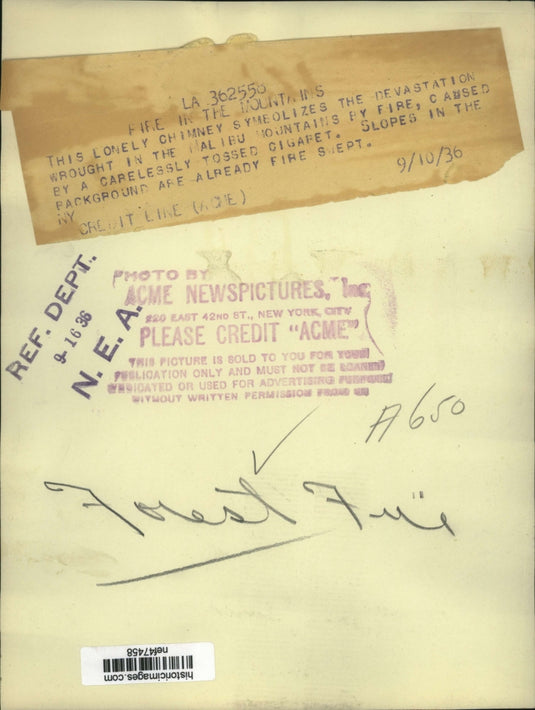 LA 362556
FIRE IN THE MOUNTAINS
THIS LONELY CHIMNEY SYMBOLIZES THE DEVASTATION
WROUGHT IN THE MALIBU MOUNTAINS BY FIRE, CAUSED
BY A CARELESSLY TOSSED CIGARET. SLOPES IN THE
BACKGROUND ARE ALREADY FIRE SWEPT.
NY
CREDIT LINE (ACME) 9/10/36
REF. DEPT.
9-16 36
N. E. A.
PHOTO BY
ACME NEWSPICTURES, Inc.
220 EAST 42ND ST., NEW YORK, CITY
PLEASE CREDIT "ACME"
THIS PICTURE IS SOLD TO YOU FOR YOUR
PUBLICATION ONLY AND MUST NOT BE LOANED
SYNDICATED OR USED FOR ADVERTISING PURPOSES
WITHOUT WRITTEN PERMISSION FROM US
A650
Forest Fire
historicimages.com
nef47458